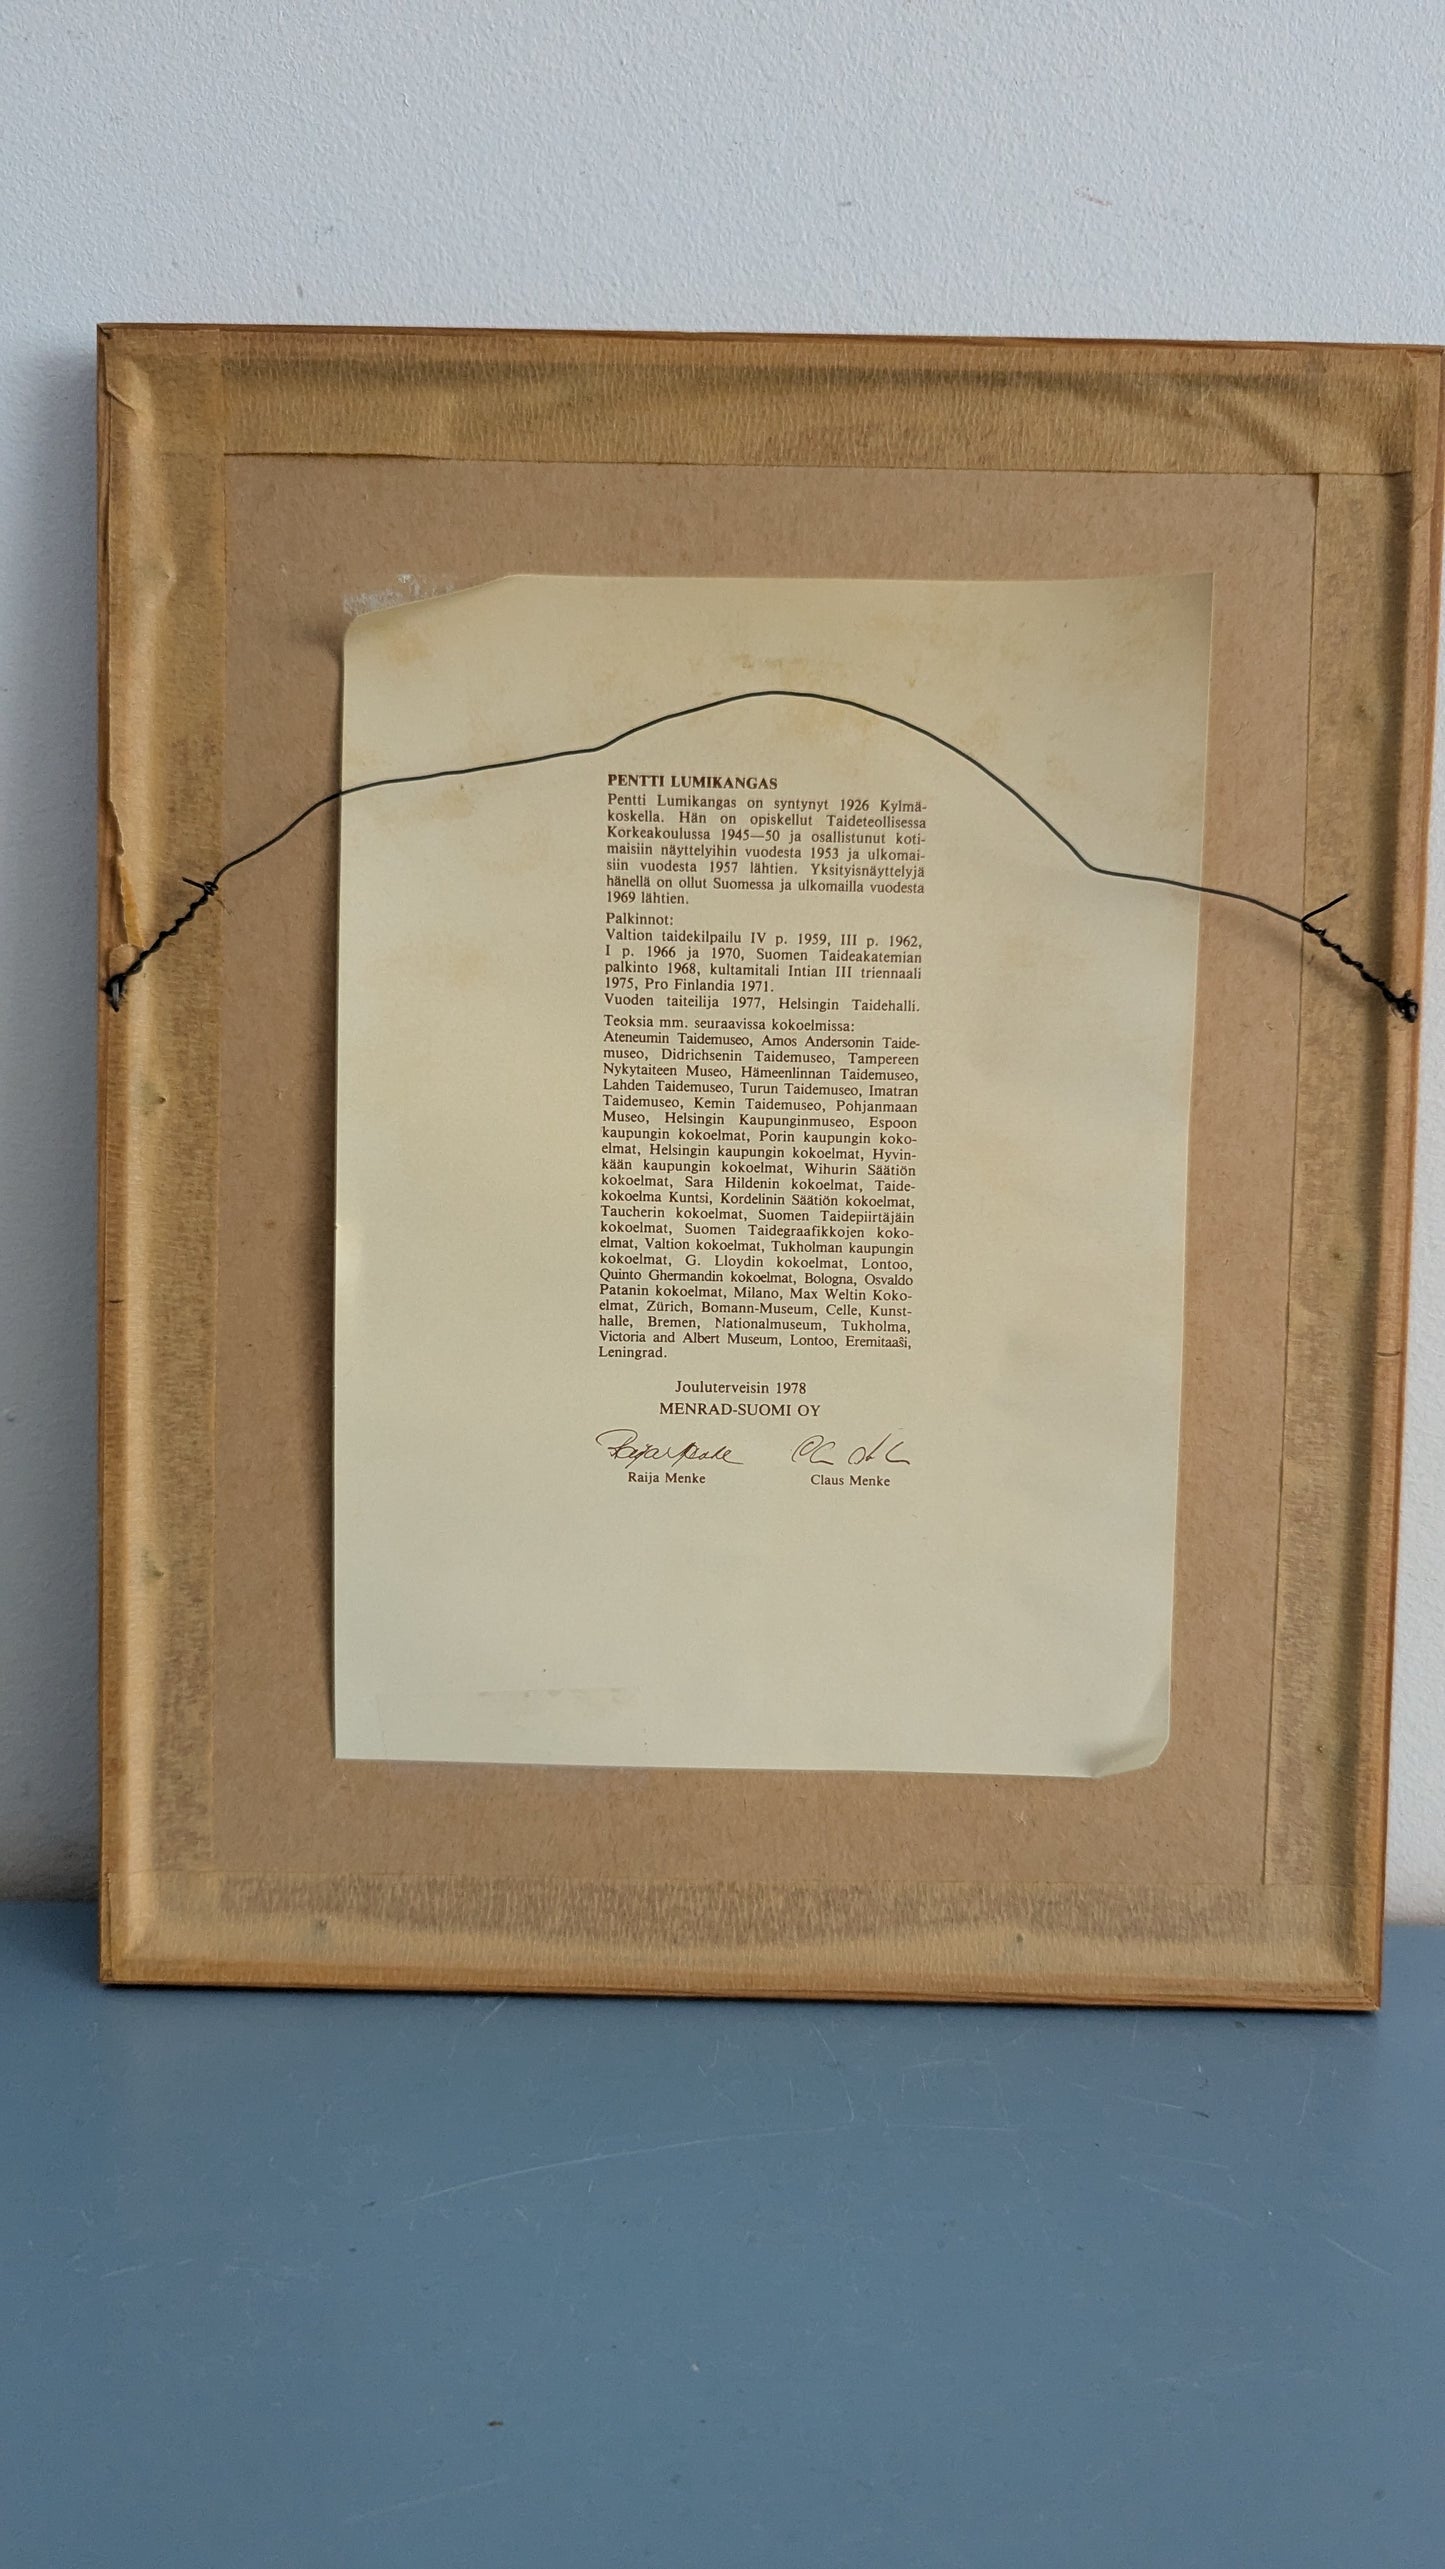 PENTTI LUMIKANGAS
Pentti Lumikangas on syntynyt 1926 Kylmä-
koskella. Hän on opiskellut Taideteollisessa
Korkeakoulussa 1945—50 ja osallistunut koti-
maisiin näyttelyihin vuodesta 1953 ja ulkomai-
siin vuodesta 1957 lähtien. Yksityisnäyttelyjä
hänellä on ollut Suomessa ja ulkomailla vuodesta
1969 lähtien.
Palkinnot:
Valtion taidekilpailu IV p. 1959, III p. 1962,
I p. 1966 ja 1970, Suomen Taideakatemian
palkinto 1968, kultamitali Intian III triennaali
1975, Pro Finlandia 1971.
Vuoden taiteilija 1977, Helsingin Taidehalli.
Teoksia mm. seuraavissa kokoelmissa:
Ateneumin Taidemuseo, Amos Andersonin Taide-
museo, Didrichsenin Taidemuseo, Tampereen
Nykytaiteen Museo, Hämeenlinnan Taidemuseo,
Lahden Taidemuseo, Turun Taidemuseo, Imatran
Taidemuseo, Kemin Taidemuseo, Pohjanmaan
Museo, Helsingin Kaupunginmuseo, Espoon
kaupungin kokoelmat, Porin kaupungin koko-
elmat, Helsingin kaupungin kokoelmat, Hyvin-
kään kaupungin kokoelmat, Wihurin Säätiön
kokoelmat, Sara Hildenin kokoelmat, Taide-
kokoelma Kuntsi, Kordelinin Säätiön kokoelmat,
Taucherin kokoelmat, Suomen Taidepiirtäjäin
kokoelmat, Suomen Taidegraafikkojen koko-
elmat, Valtion kokoelmat, Tukholman kaupungin
kokoelmat, G. Lloydin kokoelmat, Lontoo,
Quinto Ghermandin kokoelmat, Bologna, Osvaldo
Patanin kokoelmat, Milano, Max Weltin Koko-
elmat, Zürich, Bomann-Museum, Celle, Kunst-
halle, Bremen, Nationalmuseum, Tukholma,
Victoria and Albert Museum, Lontoo, Eremitaaši,
Leningrad.
Jouluterveisin 1978
MENRAD-SUOMI OY
Raija Menke Claus Menke